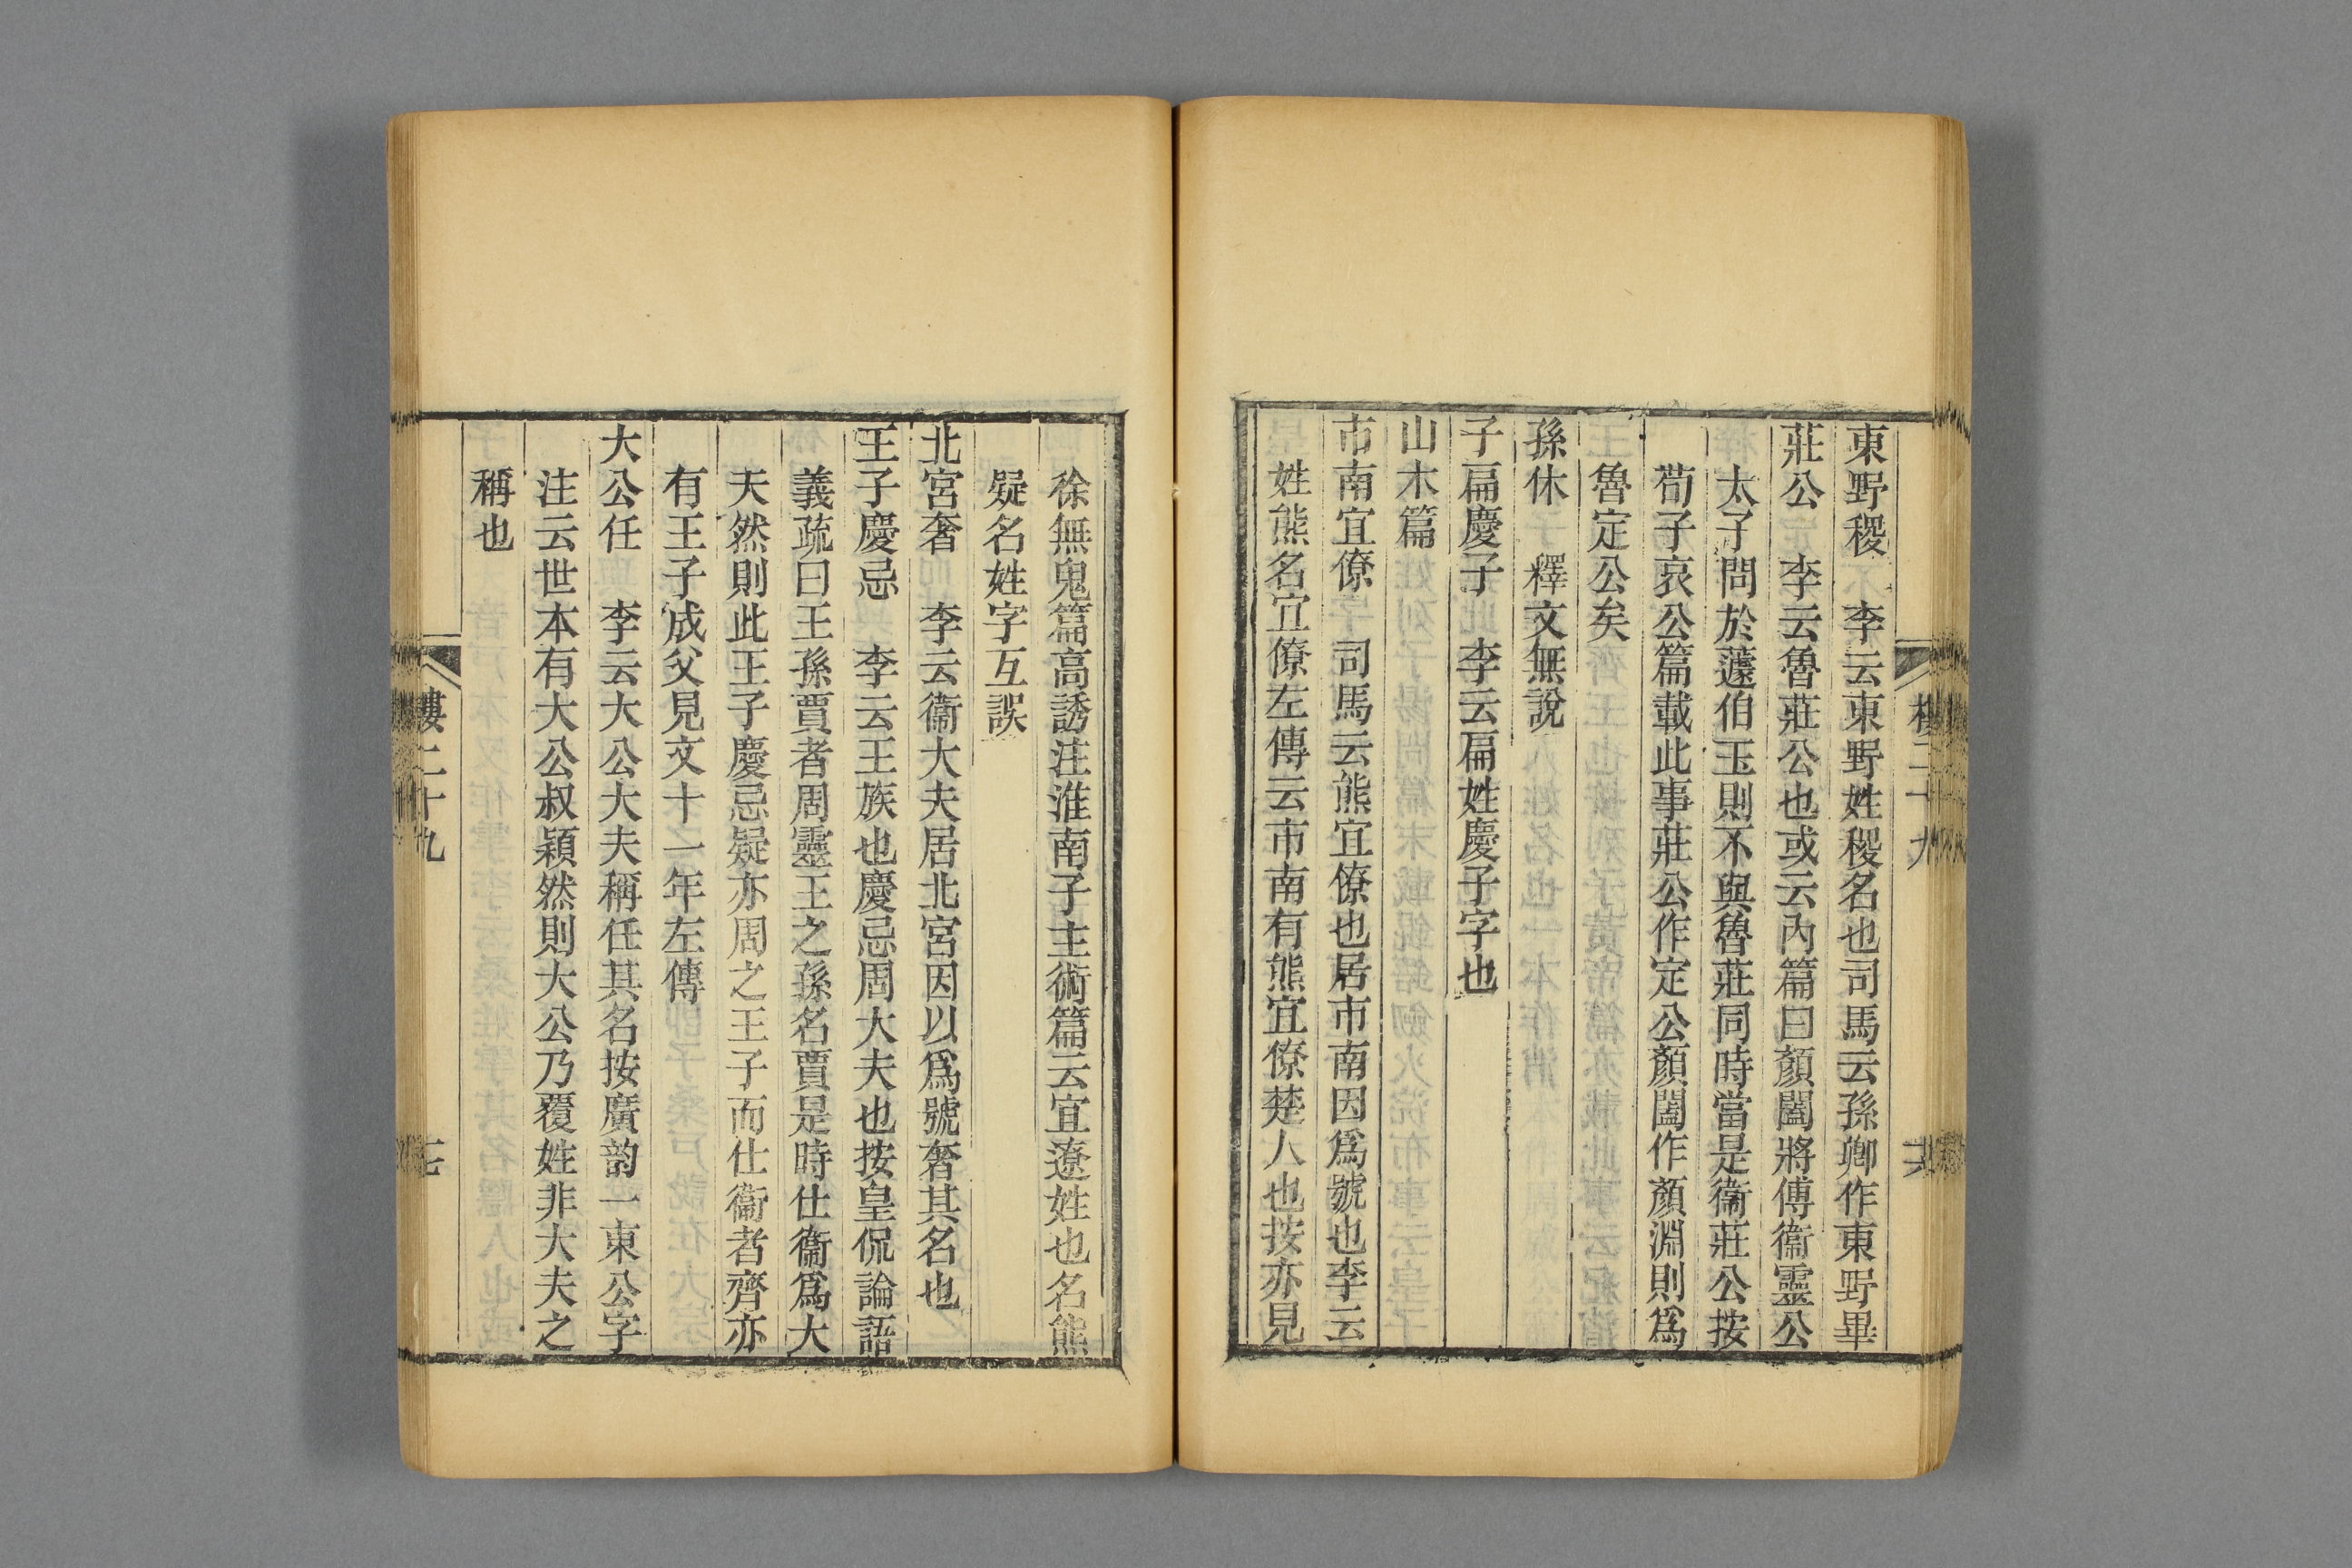 東野稷　李云東野姓稷名也司馬云孫卿作東野畢
莊公　李云魯莊公也或云內篇曰顏闔將傅衞靈公
太子問於蘧伯玉則不與魯莊同時當是衞莊公按
荀子哀公篇載此事莊公作定公顏闔作顏淵則爲
魯定公矣
孫休　釋文無說
子扁慶子　李云扁姓慶子字也
山木篇
市南宜僚　司馬云熊宜僚也居市南因爲號也李云
姓熊名宜僚左傳云市南有熊宜僚楚人也按亦見
徐無鬼篇高誘注淮南子主術篇云宜遼姓也名熊
疑名姓字互誤
北宮奢　李云衞大夫居北宮因以爲號奢其名也
王子慶忌　李云王族也慶忌周大夫也按皇侃論語
義疏曰王孫賈者周靈王之孫名賈是時仕衞爲大
夫然則此王子慶忌疑亦周之王子而仕衞者齊亦
有王子成父見文十一年左傳
大公任　李云大公大夫稱任其名按廣韵一東公字
注云世本有大公叔穎然則大公乃覆姓非大夫之
稱也
樓二十九
七